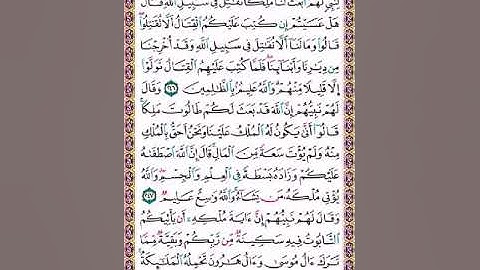 لِنَبِيٍّ لَهُمُ ٱبْعَثْ لَنَا مَلِكًا نُّقَٰتِلْ فِى سَبِيلِ ٱللَّهِ قَالَ
هَلْ عَسَيْتُمْ إِن كُتِبَ عَلَيْكُمُ ٱلْقِتَالُ أَلَّا تُقَٰتِلُوا۟
قَالُوا۟ وَمَا لَنَآ أَلَّا نُقَٰتِلَ فِى سَبِيلِ ٱللَّهِ وَقَدْ أُخْرِجْنَا
مِن دِيَٰرِنَا وَأَبْنَآئِنَا فَلَمَّا كُتِبَ عَلَيْهِمُ ٱلْقِتَالُ تَوَلَّوْا۟
إِلَّا قَلِيلًا مِّنْهُمْ وَٱللَّهُ عَلِيمٌۢ بِٱلظَّٰلِمِينَ ٢٤٦ وَقَالَ
لَهُمْ نَبِيُّهُمْ إِنَّ ٱللَّهَ قَدْ بَعَثَ لَكُمْ طَالُوتَ مَلِكًا
قَالُوٓا۟ أَنَّىٰ يَكُونُ لَهُ ٱلْمُلْكُ عَلَيْنَا وَنَحْنُ أَحَقُّ بِٱلْمُلْكِ
مِنْهُ وَلَمْ يُؤْتَ سَعَةً مِّنَ ٱلْمَالِ قَالَ إِنَّ ٱللَّهَ ٱصْطَفَىٰهُ
عَلَيْكُمْ وَزَادَهُۥ بَسْطَةً فِى ٱلْعِلْمِ وَٱلْجِسْمِ وَٱللَّهُ
يُؤْتِى مُلْكَهُۥ مَن يَشَآءُ وَٱللَّهُ وَٰسِعٌ عَلِيمٌ ٢٤٧
وَقَالَ لَهُمْ نَبِيُّهُمْ إِنَّ ءَايَةَ مُلْكِهِۦٓ أَن يَأْتِيَكُمُ
ٱلتَّابُوتُ فِيهِ سَكِينَةٌ مِّن رَّبِّكُمْ وَبَقِيَّةٌ مِّمَّا
تَرَكَ ءَالُ مُوسَىٰ وَءَالُ هَٰرُونَ تَحْمِلُهُ ٱلْمَلَٰٓئِكَةُ